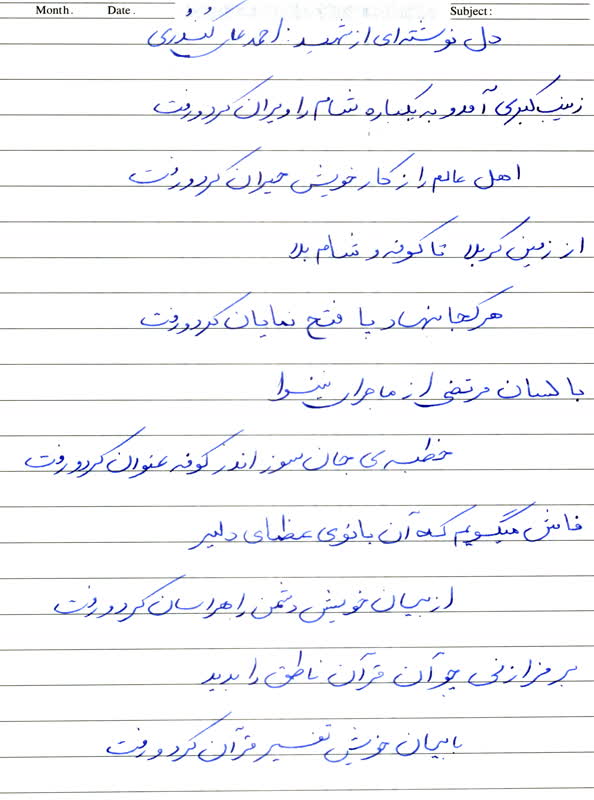 Month. Date. Subject:
دل نوشته‌ای از شهید: احمد علی
زینب کبری آمد و به یکباره شام را ویران کرد و رفت
اهل عالم را ز کار خویش حیران کرد و رفت
از زمین کربلا تا کوفه و شام بلا
هر کجا بنهاد پا فتح نمایان کرد و رفت
با لسان مرتضی از ماجرای نینوا
خطبه ی جان سوز اندر کوفه عنوان کرد و رفت
فاش میگویم که آن بانوی عظمای دلیر
از بیان خویش دشمن را هراسان کرد و رفت
بر فراز نی چو آن قرآن ناطق را بدید
با بیان خویش تفسیر قرآن کرد و رفت